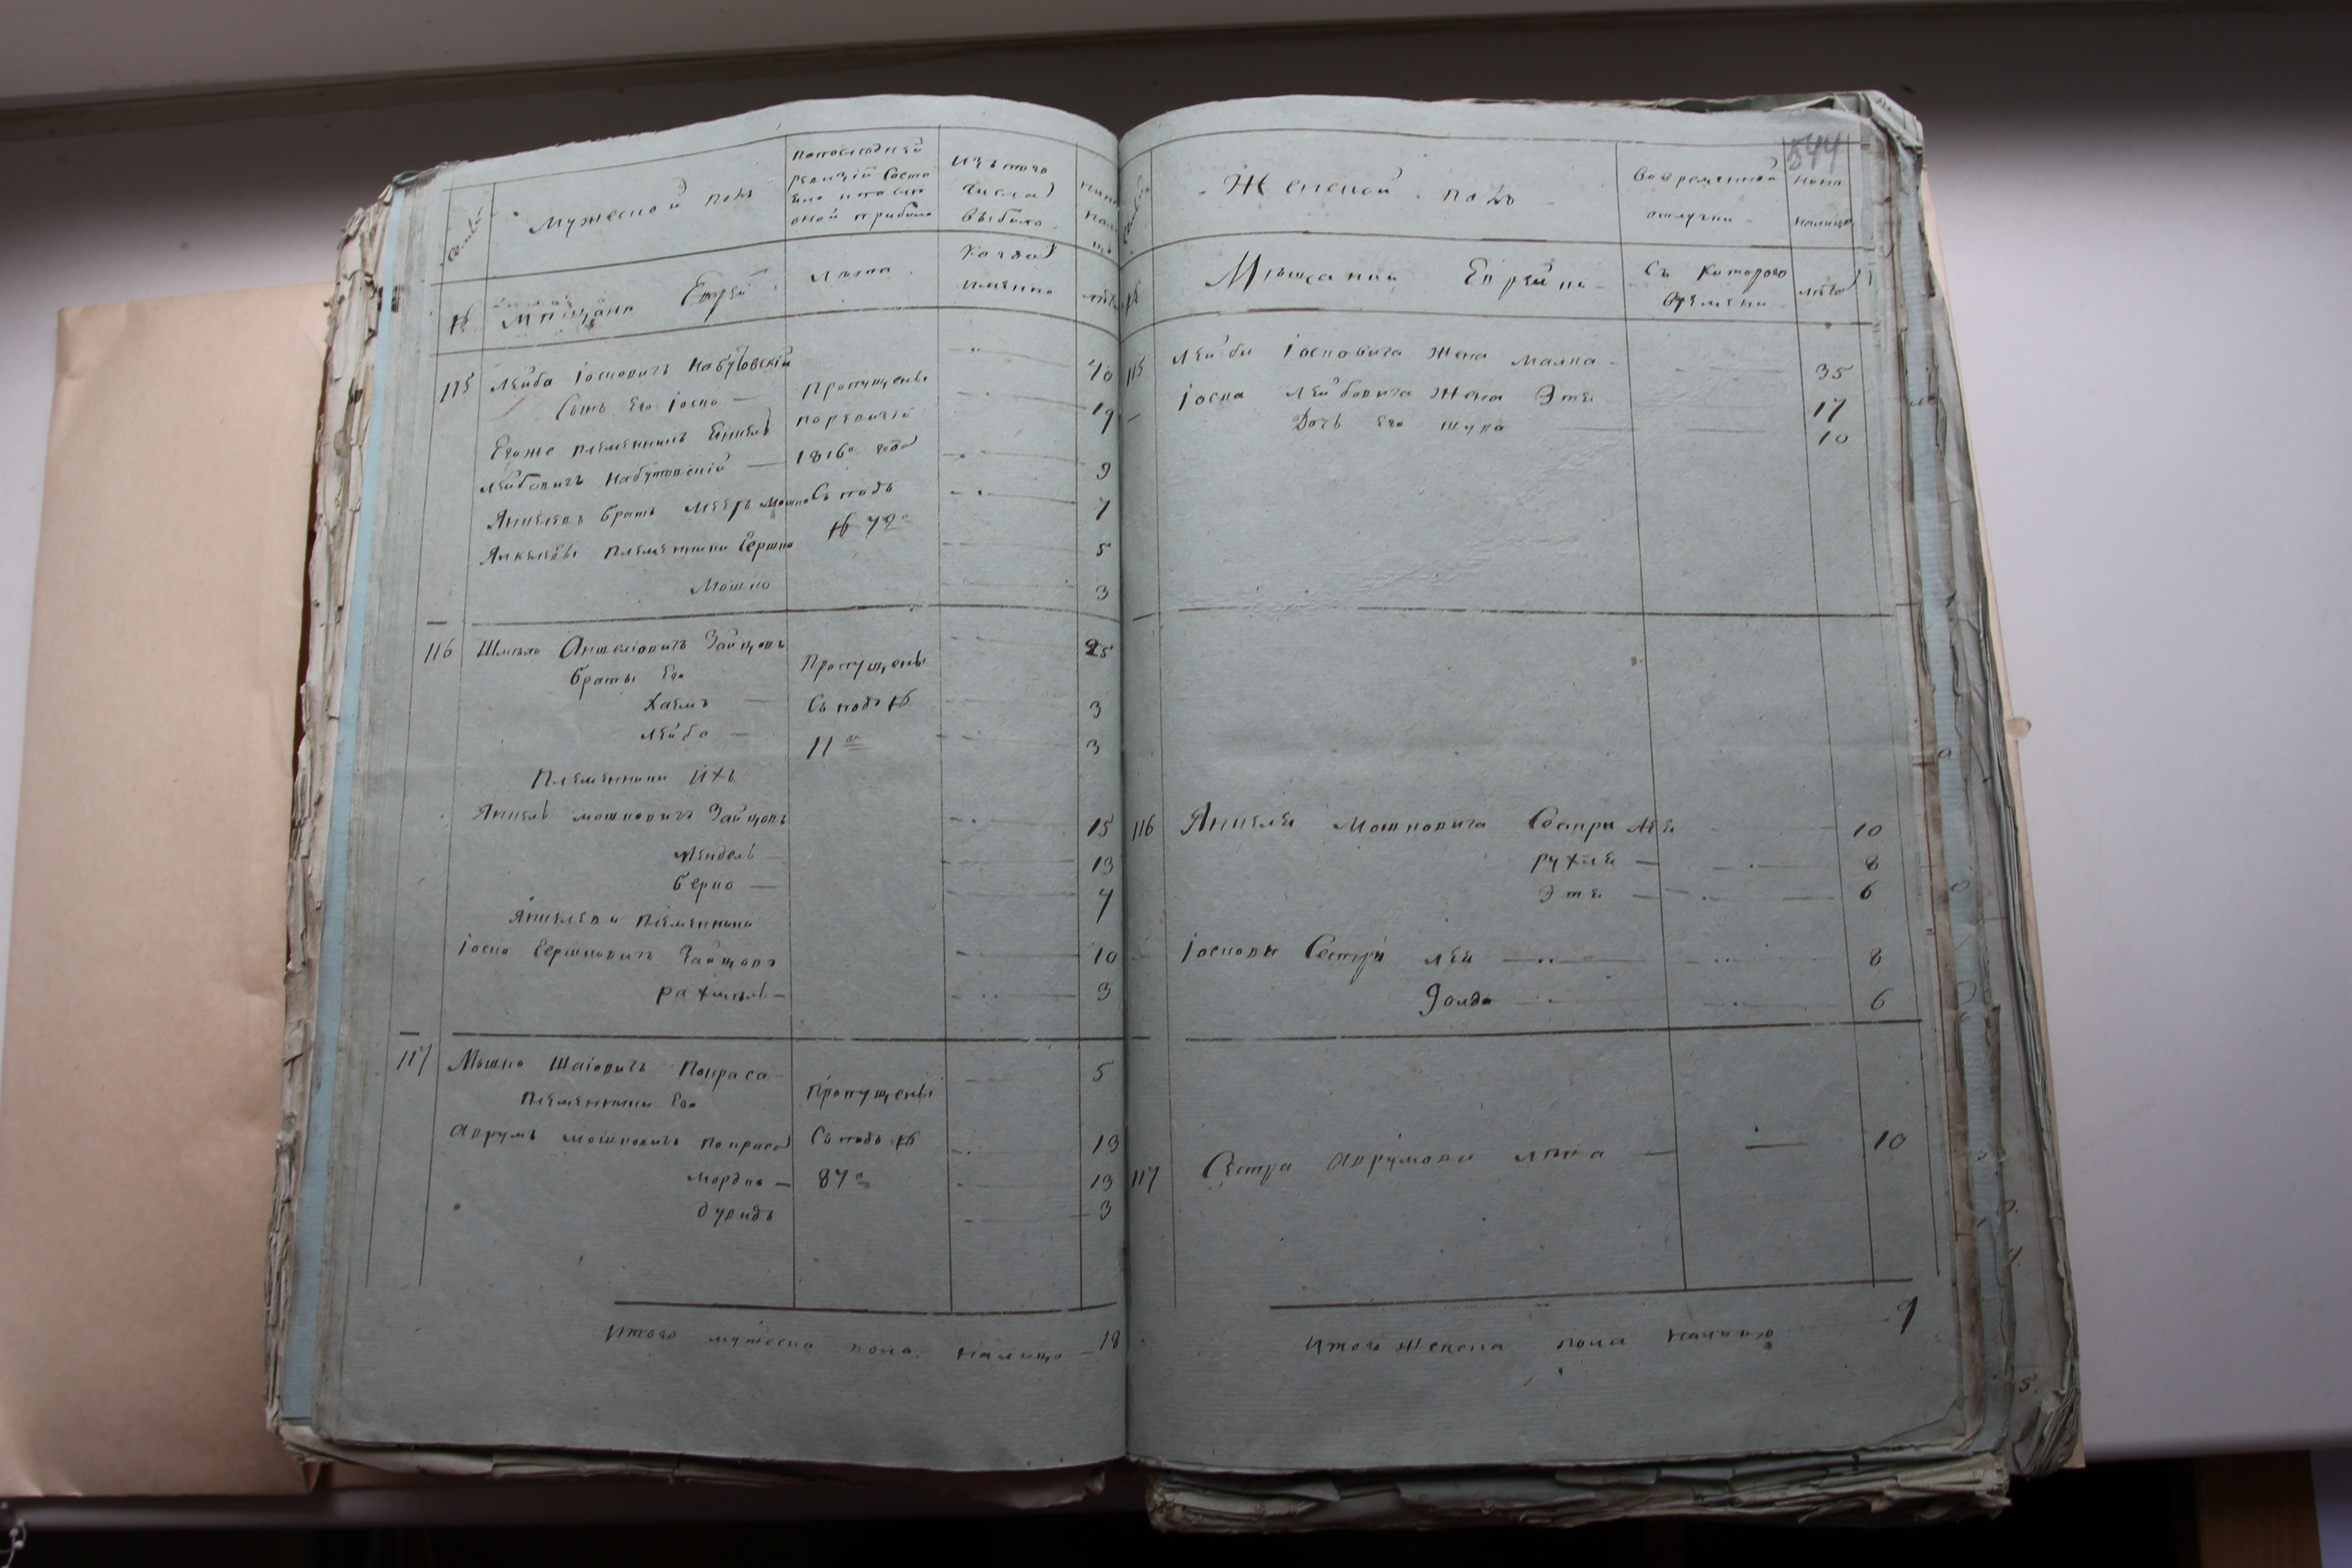 Семьи
Мужеской полъ
попоследней
ревизiй состо
яло ипосле
оной прибыло
Изътого
числа
выбыло
ныне
нали
цо
№
Мѣщане Еврей
лѣта
Когда
имянно
лѣта
115 Лейба Iосковичъ Набутовскiй 40
Сынъ Его Iоско — Пропущены 19
Егоже племянникъ Янкель поревизiй
Лейбовичъ Набутовскiй — 1816го года 9
Янкелевъ братъ Мееръ Мошко Съ подъ 7
№ 72го
Янкелевы племянники Гершко 5
Мошко 3
116 Шмуло Аншелiовичъ Зайцовъ 25
братьи Его Пропущены
Хаемъ — Съ подъ № 3
Лейба — 11го 3
Племянники Ихъ
Янкель Мошковичъ Зайцовъ 15
Мендель — 13
берко — 7
Янкелеви племянники
Iоско Гершковичъ Зайцовъ 10
рахмиль — 3
117 Мошко Шаiовичъ Покраса 5
племянники Его Пропущены
Аврумъ Мошковичъ Покраса Съ подъ № 13
Мордко — 87го 13
дувидъ 3
Итого мужеска пола налицо — 18
544
Женской полъ
Вовременной
отлучки
ныне
налицо
№
Мѣщанки Еврейки
Съ Которого
Времени
лѣта
115 Лейби Iосковича Жена Малка — 35
Iоска Лейбовича Жена Этя 17
Дочь Его Шура 10
116 Янкеля Мошковича Сестри Лея 10
рухля — 8
Этя — 6
Iоскови Сестри Лея 8
Голда 6
117 Сестра Аврумови — 10
Итого женска пола налицо 9